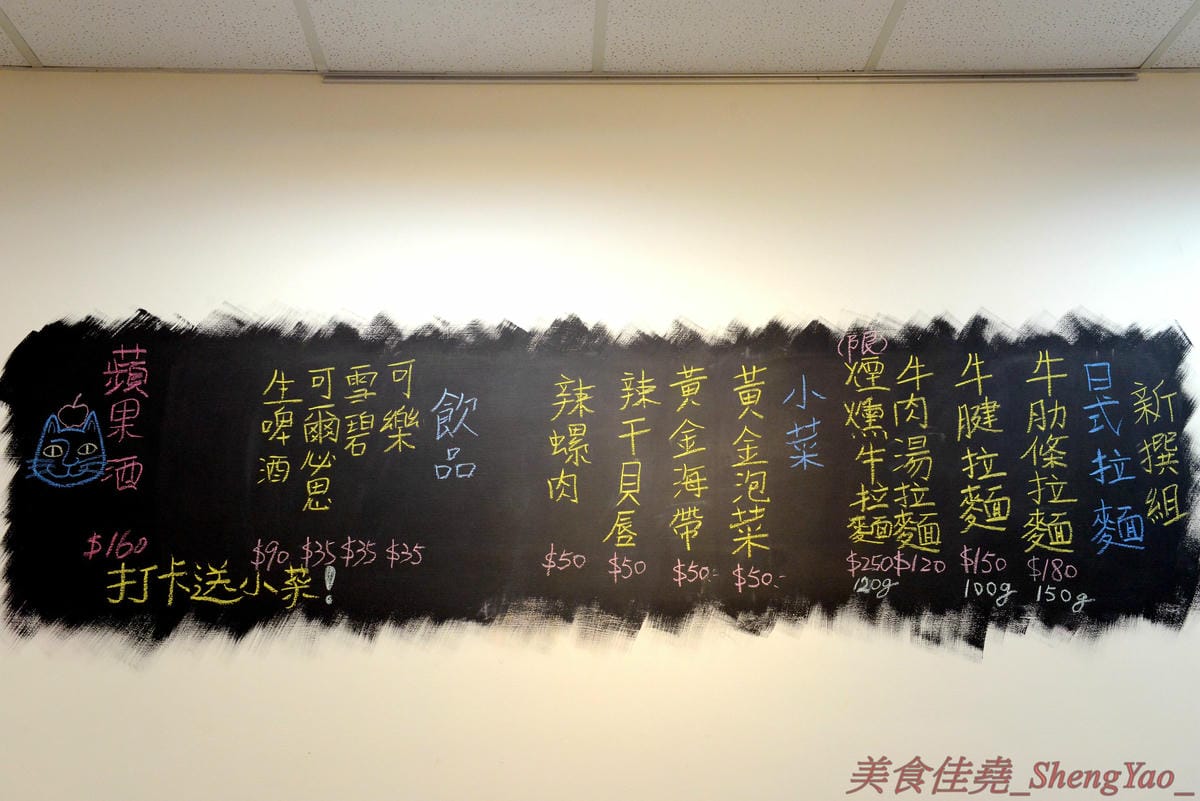 新撰組
日式拉麵
牛肋條拉麵
$180
150g
牛腱拉麵
$150
100g
牛肉湯拉麵
$120
(限)
煙燻牛拉麵
$250
120g
小菜
黃金泡菜
$50.-
黃金海帶
$50.-
辣干貝唇
$50
辣螺肉
$50
飲品
可樂
$35
雪碧
$35
可爾必思
$35
生啤酒
$90
蘋果酒
$160
打卡送小菜!
美食佳堯_ShengYao_